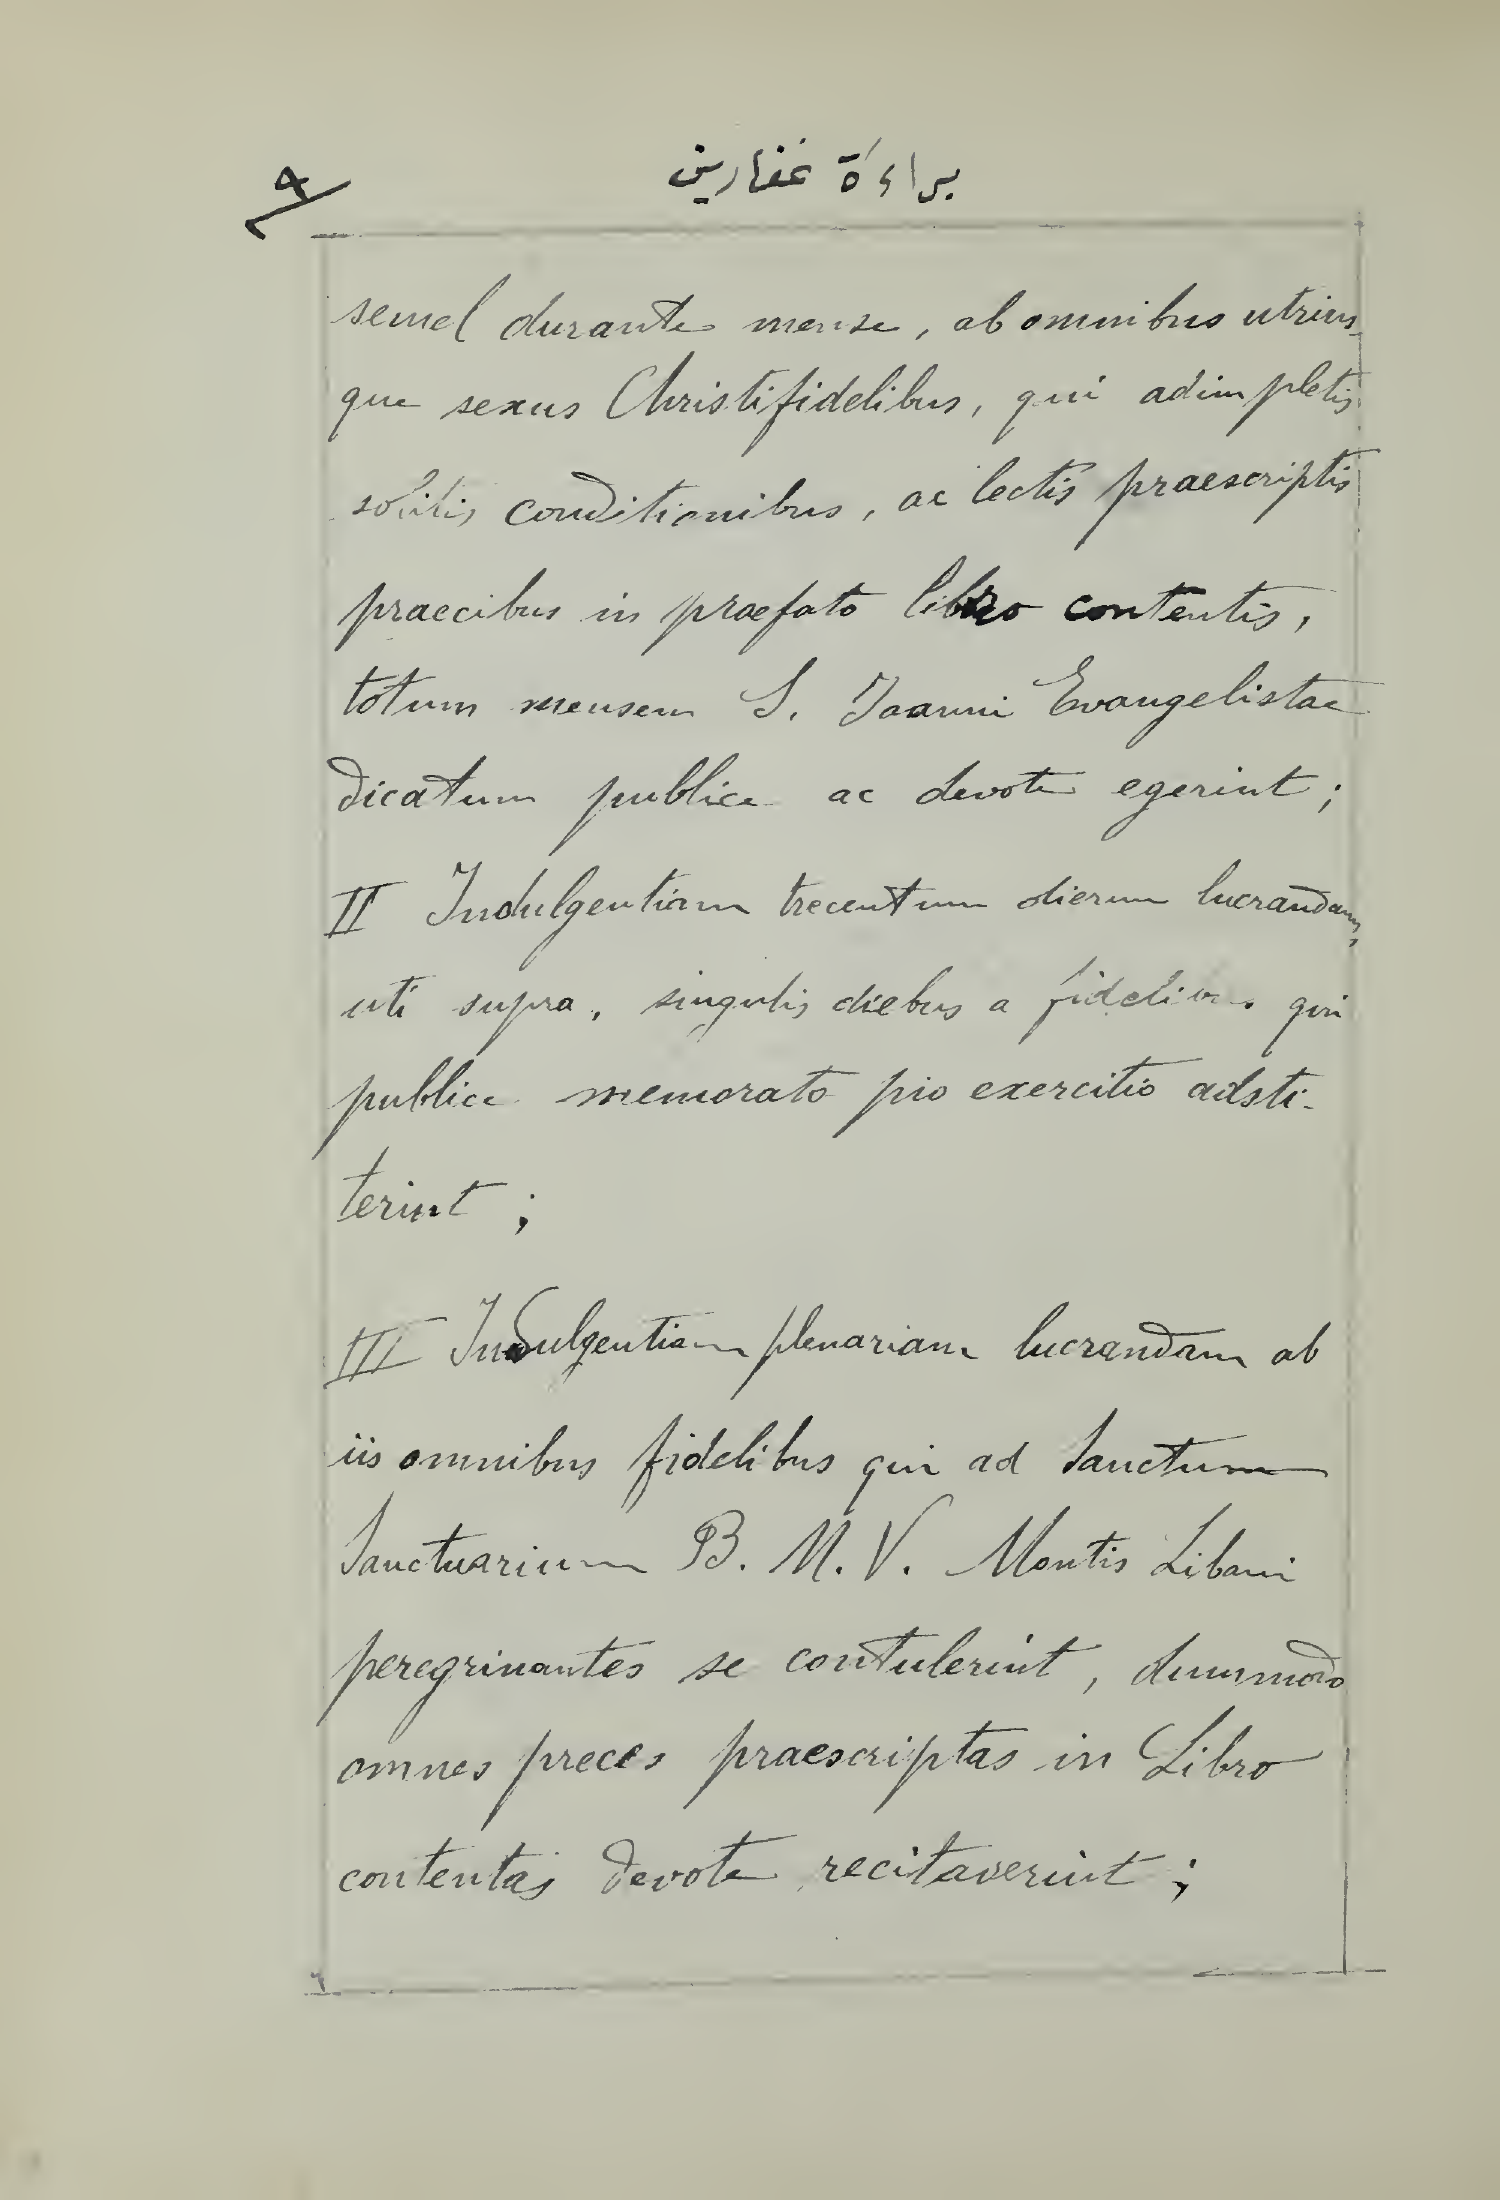 براءَة غفارين
٩
semel durante mense, ab omnibus utrius
que sexus Christifidelibus, qui adimpletis
solitis conditionibus, ac lectis praescriptis
praecibus in praefato libro contentis,
totum mensem S. Joanni Evangelistae
dicatum publice ac devote egerint;
II Indulgentiam trecentum dierum lucrandam,
uti supra, singulis diebus a fidelibus qui
publice memorato pio exercitio adsti-
terint;
III Indulgentiam plenariam lucrandam ab
iis omnibus fidelibus qui ad Sanctum
Sanctuarium B. M. V. Montis Libani
peregrinantes se contulerint, dummodo
omnes preces praescriptas in Libro
contentas devote recitaverint;